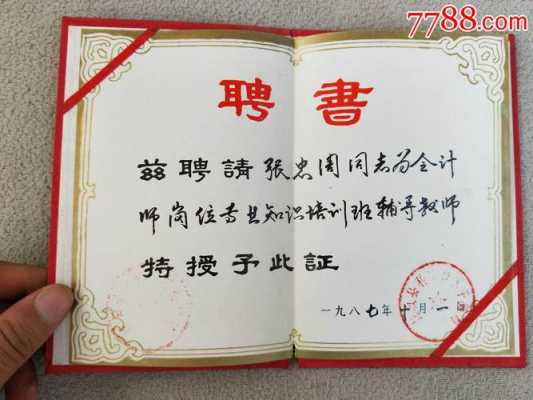 7788.com
聘書
茲聘請张忠周同志为会计
师岗位专业知识培训班辅导教师
特授予此証
一九八七年十月一日